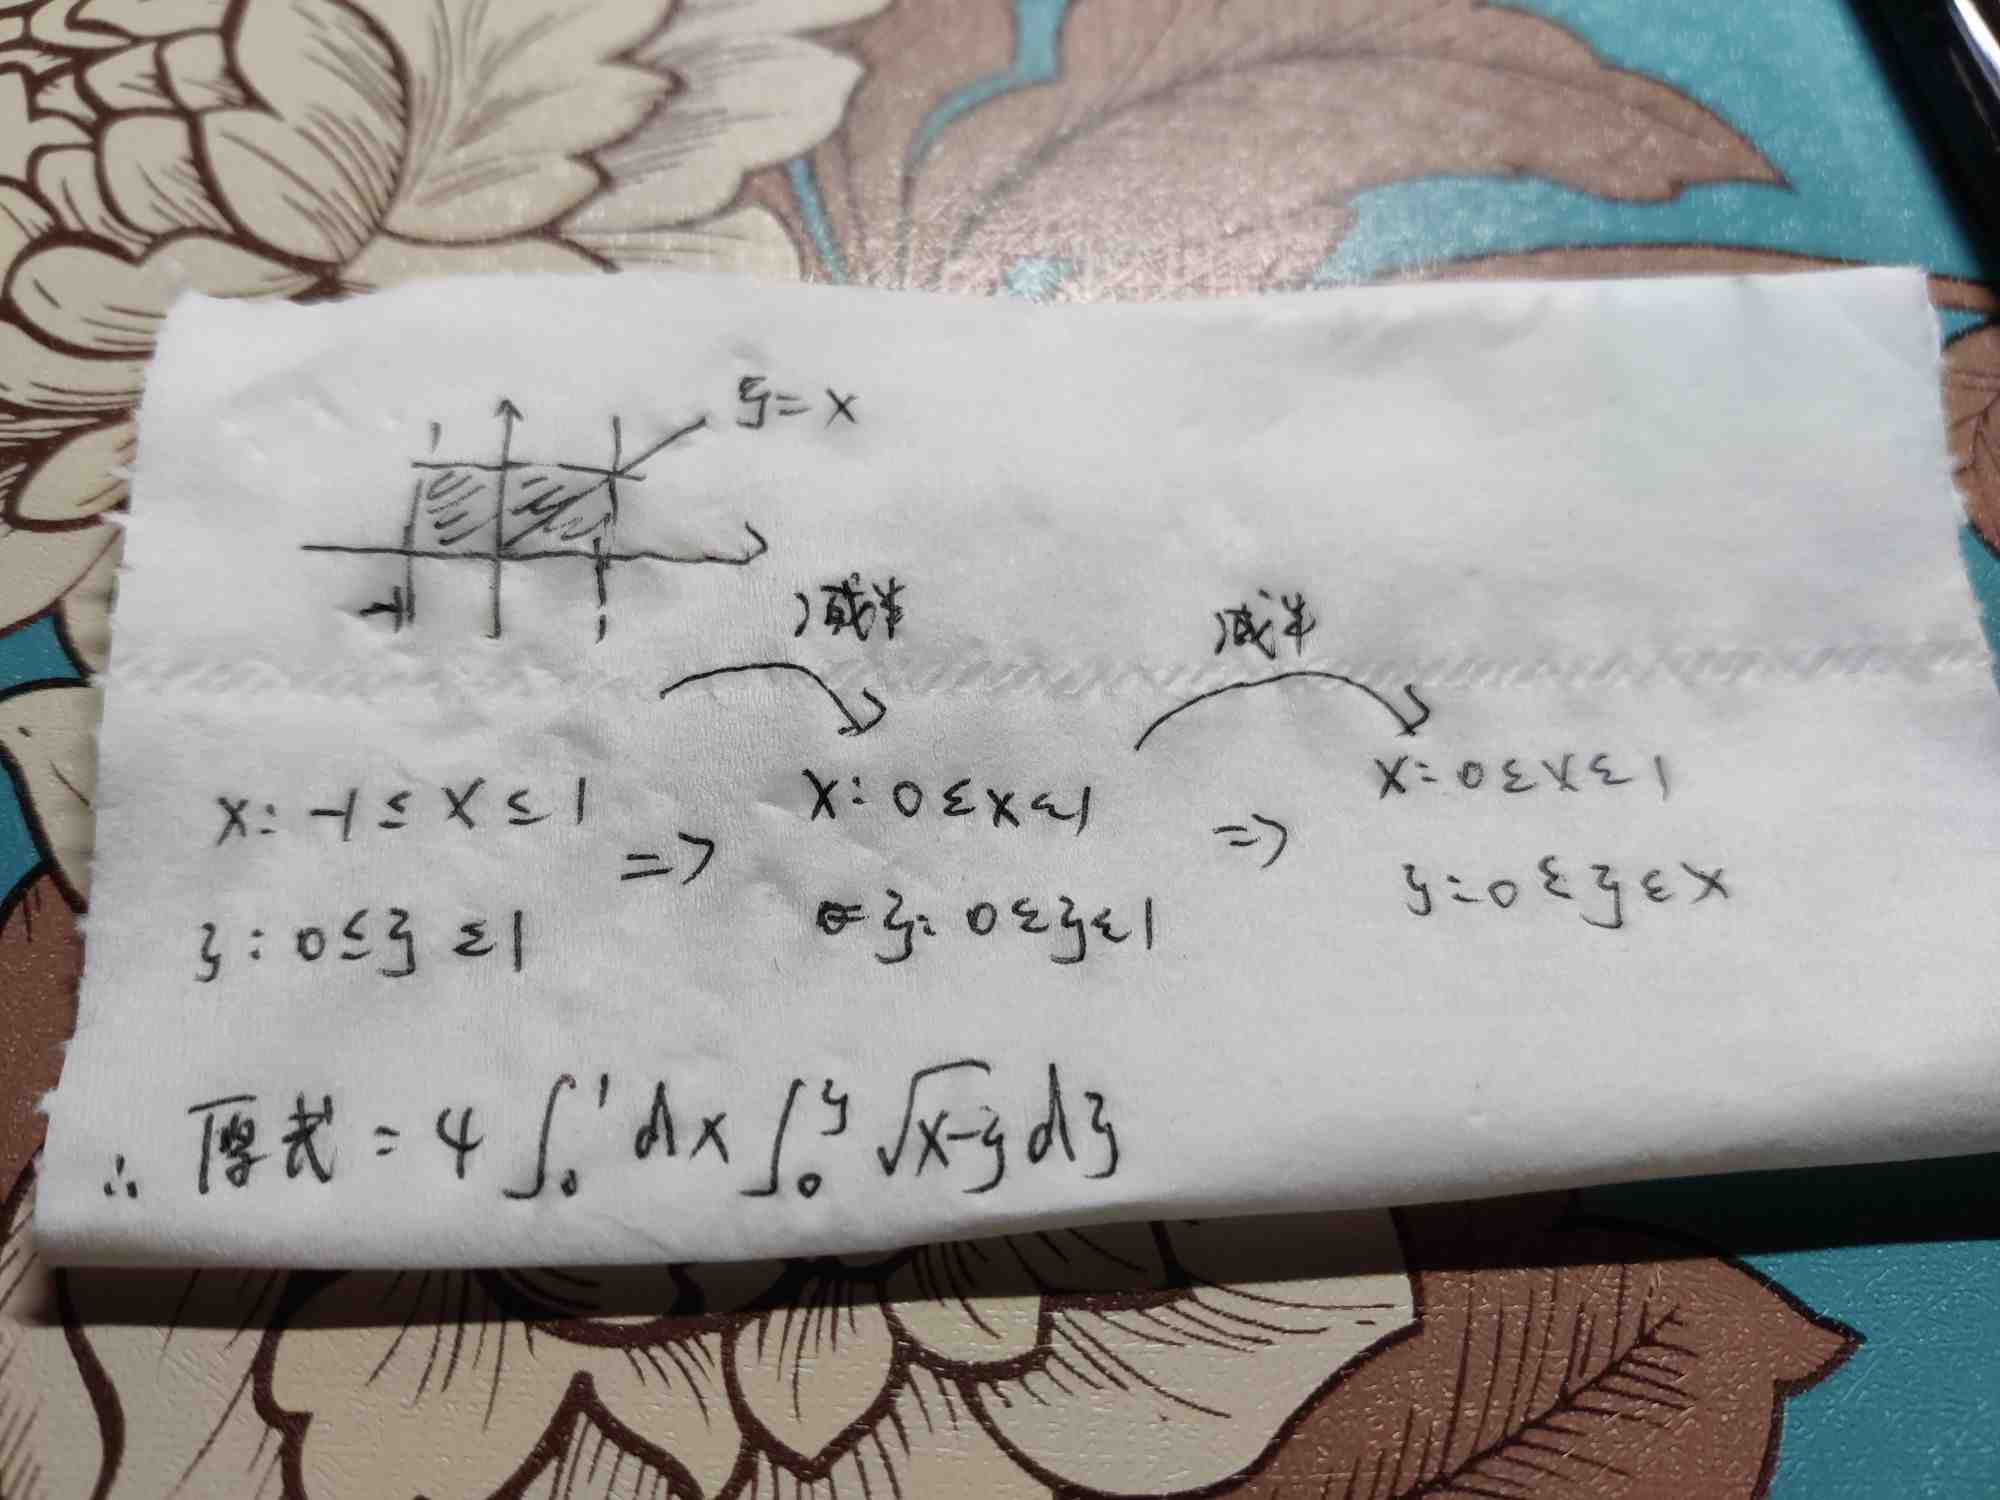 y=x
1
-1
1
减半 减半
x: -1≤x≤1 => x: 0≤x≤1 => x: 0≤x≤1
y: 0≤y≤1 y: 0≤y≤1 y: 0≤y≤x
∴ 原式 = 4∫₀¹dx∫₀ʸ√x-y dy